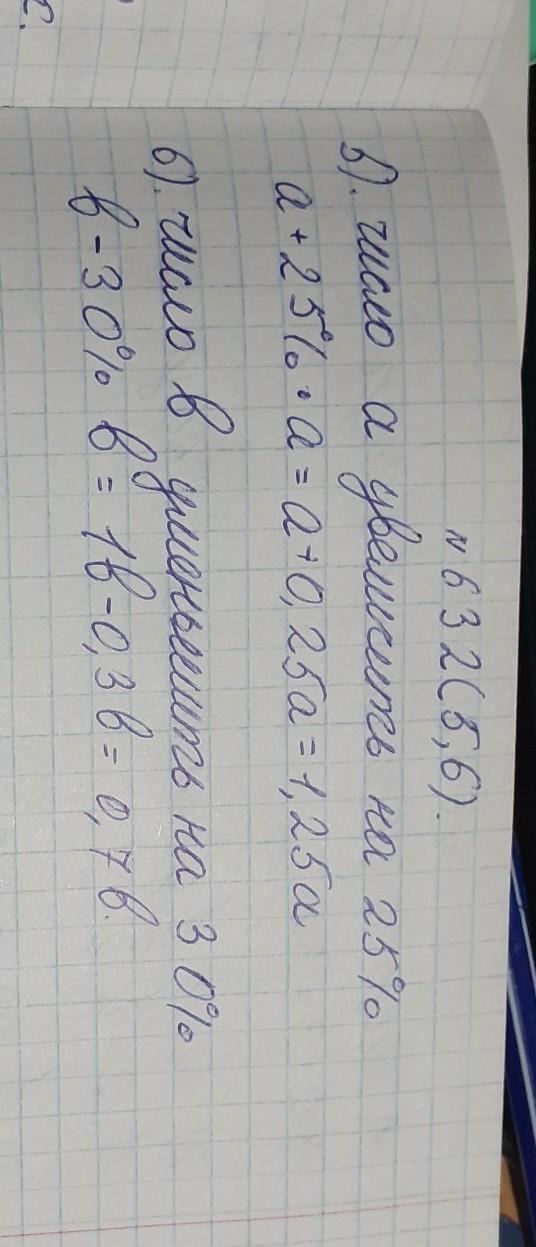 № 632(5,6).
5). число а увеличить на 25%
а + 25% · а = а + 0,25а = 1,25а
6). число в уменьшить на 30%
в - 30% в = 1в - 0,3в = 0,7в.